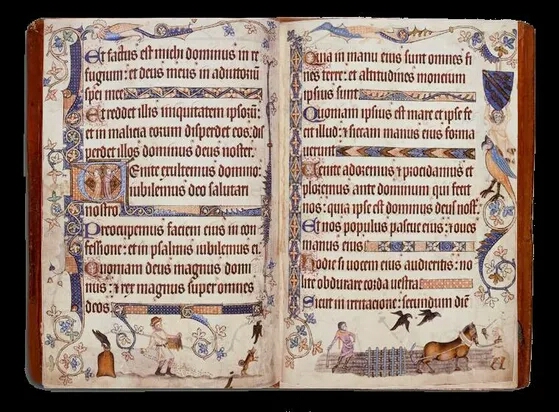 Et factus est michi dominus in re
fugium: et deus meus in adiutorium
spei mee
Et reddet illis iniquitatem ipsorum:
et in malicia eorum disperdet eos: dis
perdet illos dominus deus noster.
Venite exultemus domino:
iubilemus deo salutari
nostro
Preocupemus faciem eius in con
fessione: et in psalmis iubilemus ei.
Quoniam deus magnus domi
nus: et rex magnus super omnes
deos
Quia in manu eius sunt omnes fi
nes terre: et altitudines moncium
ipsius sunt
Quoniam ipsius est mare et ipse fe
cit illud: et siccam manus eius forma
uerunt
Uenite adoremus et procidamus et
ploremus ante dominum qui fecit
nos: quia ipse est dominus deus nost
Et nos populus pascue eius: et oues
manus eius
Hodie si uocem eius audieritis: no
lite obdurare corda uestra
Sicut in irritacione: secundum diem